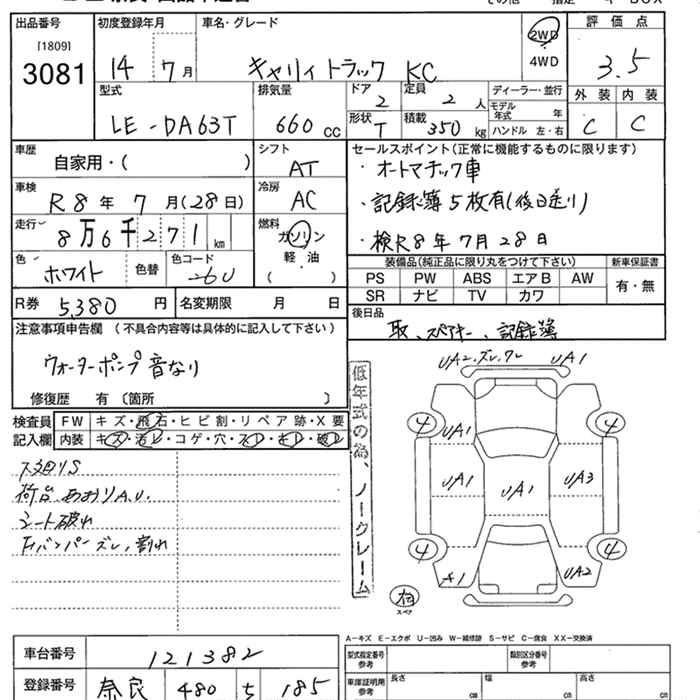 出品番号 初度登録年月 車名・グレード 2WD 4WD 評価点
[1809]
3081 14 7月 キャリィトラック KC 3.5
型式 排気量 ドア 2 定員 2人 ディーラー・並行 外装 内装
LE-DA63T 660cc 形状 T 積載 350kg モデル年式 年 ハンドル 左・右 C C
車歴 シフト セールスポイント(正常に機能するものに限ります)
自家用・( ) AT ・オートマチック車
車検 冷房
R8年 7月(28日) AC ・記録簿5枚有(後日送り)
走行 燃料
8万6千271km ガソリン ・検R8年7月28日
軽油
( )
色 色替 色コード 装備品(純正品に限り丸をつけて下さい) 新車保証書
ホワイト 26U PS PW ABS エアB AW 有・無
SR ナビ TV カワ
R券 5,380円 名変期限 月 日 後日品
取、スペアキー、記録簿
注意事項申告欄 (不具合内容等は具体的に記入して下さい)
ウォーターポンプ音なり
修復歴 有 〔箇所 〕
検査員 FW キズ・飛石・ヒビ割・リペア跡・X要
記入欄 内装 キズ・汚レ・コゲ・穴・スレ・キレ・破レ
荷台、あおりA.U.
シート破れ
Fバンパーズレ、割れ
低年式の為、ノークレーム
UA2.ズレ.ワレ UA1
4 4
UA1
UA1 UA1 UA3
4 4
A1 UA2
スペア
A-キズ E-エクボ U-凹み W-補修跡 S-サビ C-腐食 XX-交換済
車台番号 121382 型式指定番号 参考 類別区分番号 参考
登録番号 奈良 480 185 車庫証明用 参考 長さ cm 幅 cm 高さ cm